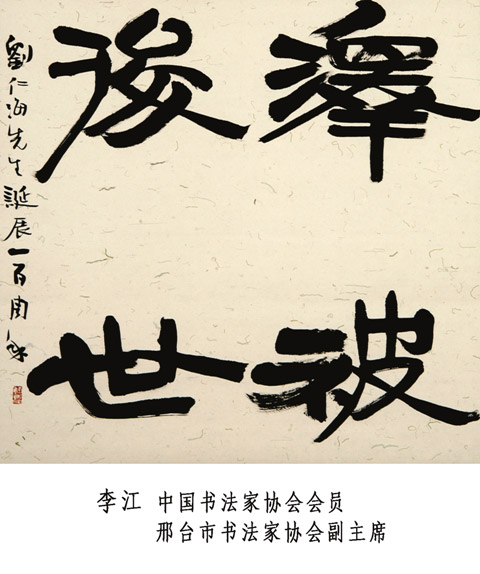 澤被
後世
劉仁海先生誕辰一百周年
李江 中国书法家协会会员
邢台市书法家协会副主席